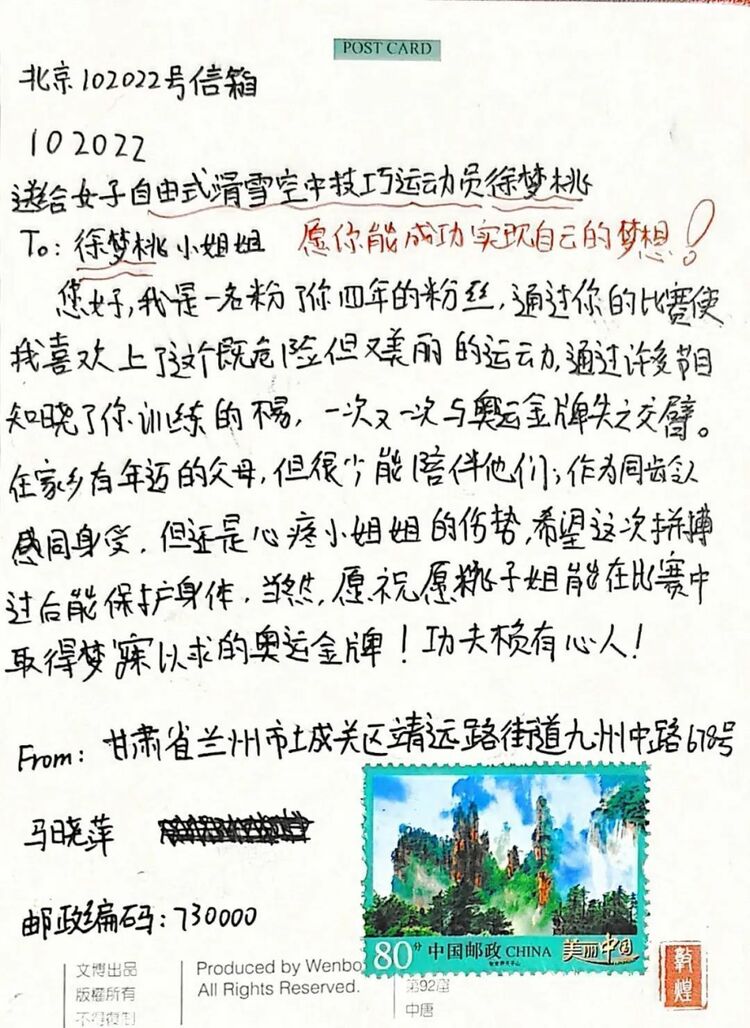 POST CARD
北京102022号信箱
102022
送给女子自由式滑雪空中技巧运动员徐梦桃
To: 徐梦桃小姐姐 愿你能成功实现自己的梦想!
您好,我是一名粉了你四年的粉丝,通过你的比赛使
我喜欢上了这个既危险但又美丽的运动,通过许多节目
知晓了你训练的不易,一次又一次与奥运金牌失之交臂。
在家乡有年迈的父母,但很少能陪伴他们;作为同龄人
感同身受,但还是心疼小姐姐的伤势,希望这次拼搏
过后能保护身体,当然,愿祝愿桃子姐能在比赛中
取得梦寐以求的奥运金牌!功夫赖有心人!
From: 甘肃省兰州市城关区靖远路街道九州中路678号
马晓萍
邮政编码:730000
80分 中国邮政 CHINA 美丽中国
敦煌
文博出品 Produced by Wenbo
版權所有 All Rights Reserved. 第92窟
不得複制 中唐